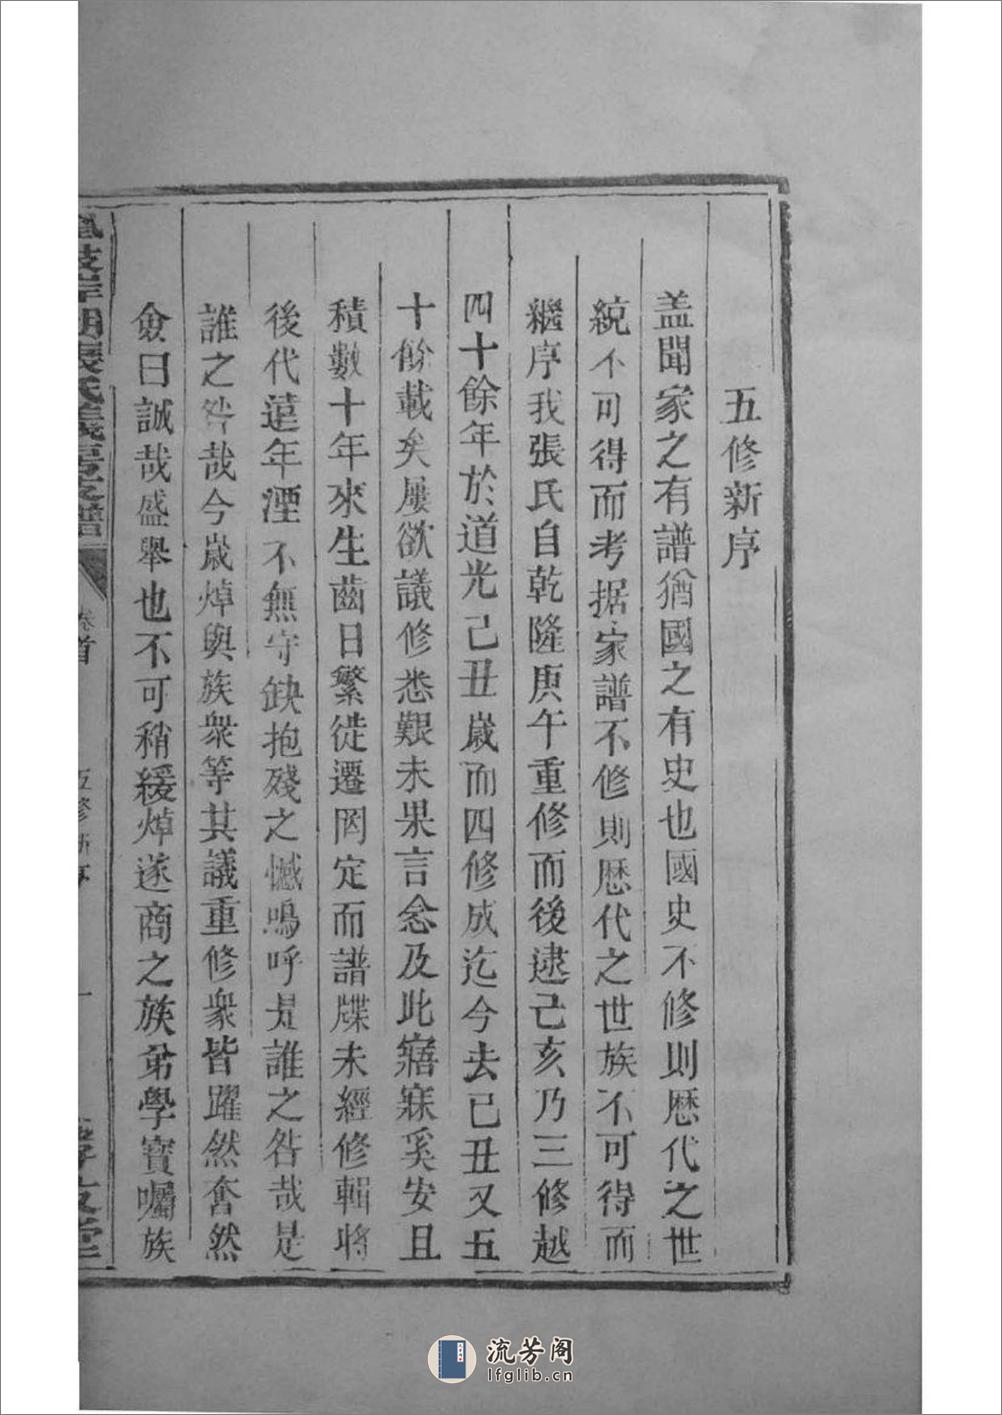 五修新序
盖聞家之有譜猶國之有史也國史不修則歴代之世
統不可得而考据家譜不修則歴代之世族不可得而
繼序我張氏自乾隆庚午重修而後逮己亥乃三修越
四十餘年於道光己丑歲而四修成迄今去己丑又五
十餘載矣屢欲議修悉艱未果言念及此寤寐奚安且
積數十年來生齒日繁徙遷罔定而譜牒未經修輯將
後代遠年湮不無守缺抱殘之憾嗚呼是誰之咎哉是
誰之咎哉今歲焯與族衆等其議重修衆皆躍然奮然
僉曰誠哉盛舉也不可稍緩焯遂商之族弟學寳囑族
張氏義房支譜
卷首
五修新序
一
孝友堂
流芳阁
lfglib.cn